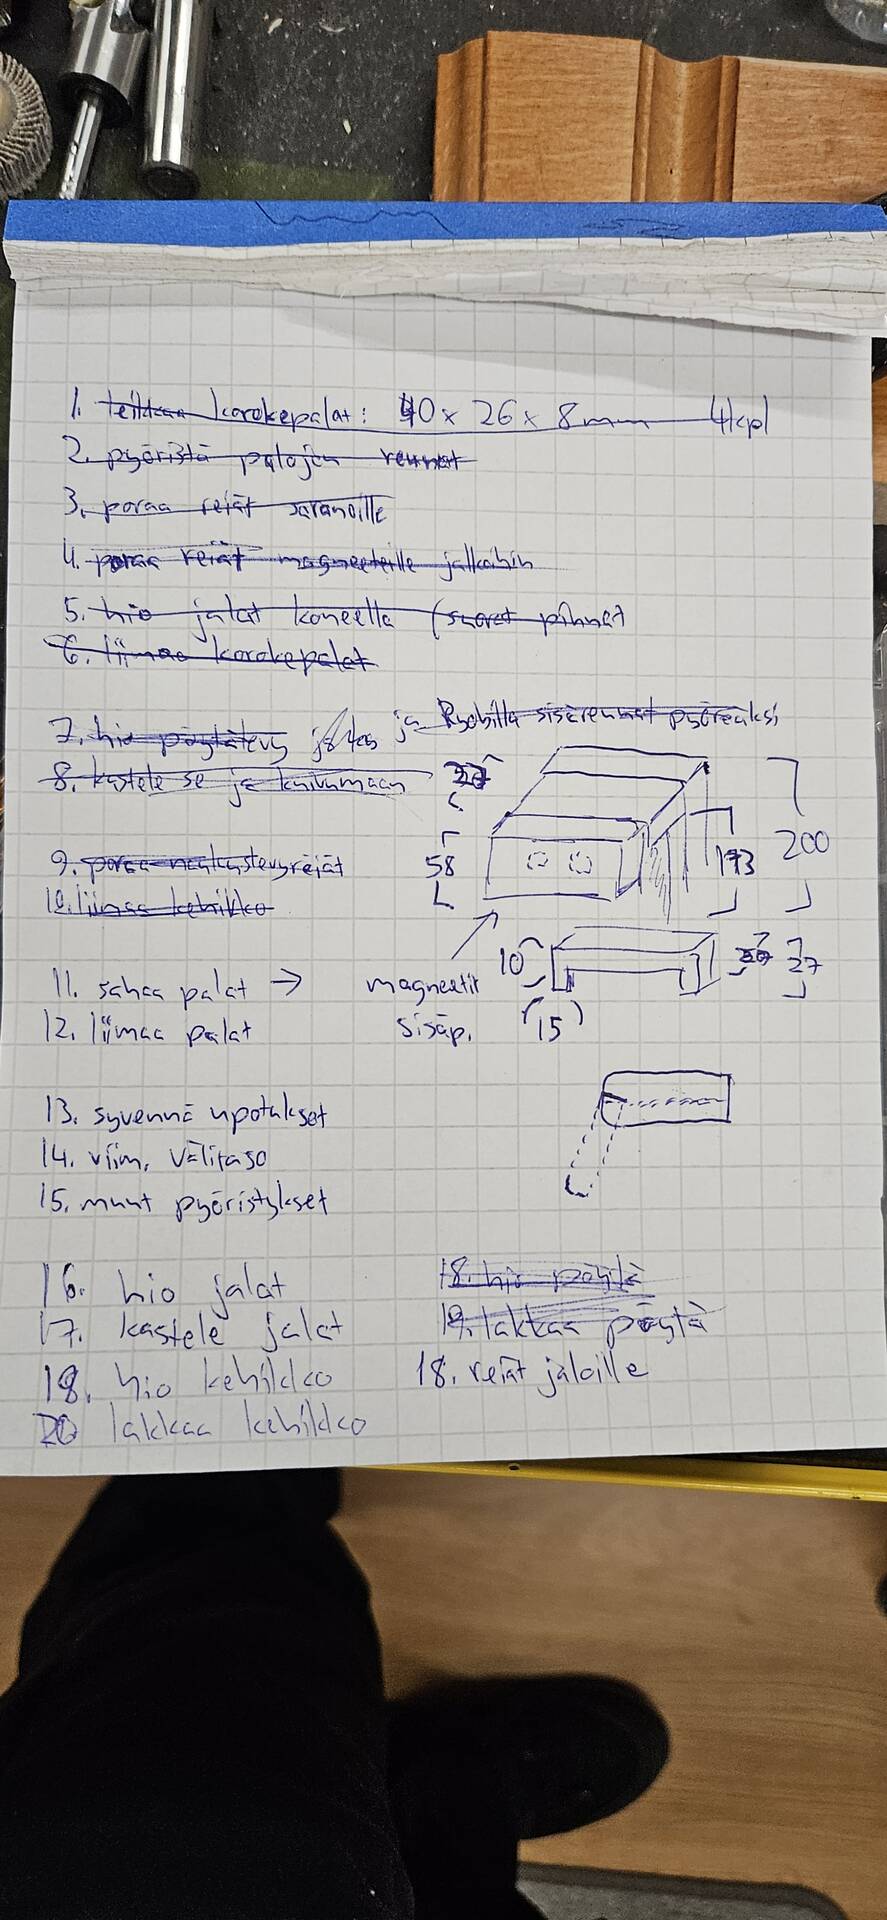 1. leikkaa korokepalat: 40 x 26 x 8mm 4kpl
2. pyöristä palojen reunat
3. poraa reiät saranoille
4. poraa reiät magneeteille jalkoihin
5. hio jalat koneella (suorat pinnat
6. liimaa korokepalat
7. hio pöytälevy ja Ryobilla sisäreunat pyöreäksi
8. kastele se ja kuivumaan
58
173
200
9.
10. liimaa kehikko
11. sahaa palat →
magneetit
sisäp.
10
27
12. liimaa palat
(15)
13. syvennä upotukset
14. viim. välitaso
15. muut pyöristykset
16. hio jalat
17. kastele jalat
18. hio kehikko
20 lakkaa kehikko
18. hio pöytä
19. lakkaa pöytä
18. reiät jaloille